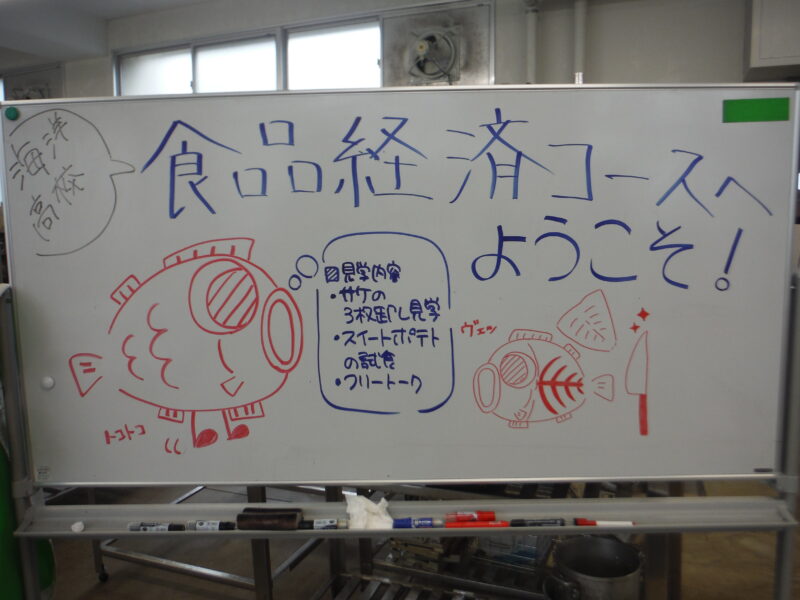 海洋
高校
食品経済コースへ
ようこそ!
見学内容
・サケの
3枚卸し見学
・スイートポテト
の試食
・フリートーク
トコトコ
ヴェッ